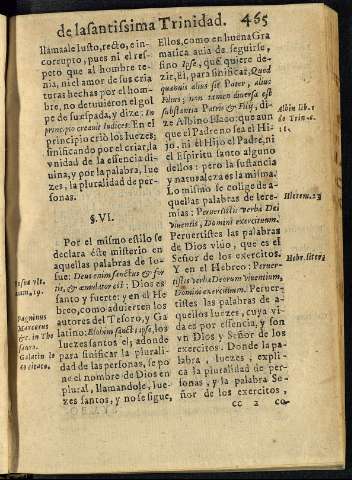 de la santissima Trinidad. 465
llámaale Iusto, recto, e in-
corrupto, pues ni el res-
peto que al hombre te-
nia, ni el amor de sus cria
turas hechas por el hom-
bre, no detuuieron el gol
pe de su espada, y dize: In
principio creauit Iudices: En el
principio criò los Iuezes;
sinificando por el criar, la
vnidad de la essencia di-
uina, y por la palabra, Iue
zes, la pluralidad de per-
sonas.
§. VI.
Por el mismo estilo se
declara este misterio en
aquellas palabras de Io-
sue: Deus enim sanctus & for
tis, & emulator est: Dios es
santo y fuerte: y en el He
breo, como aduierten los
autores del Tesoro, y Ga
latino: Elohim sancti ipse, los
Iuezes santos el; adonde
para sinificar la plurali-
dad de las personas, se po
ne el nombre de Dios en
plural, llamandole, Iue-
zes santos, y no se sigue,
19.
Pagninus
Marcerus
&c. in The
sauro.
Galatin lo
co citato.
Ellos, como en buena Gra
matica auia de seguirse,
sino Ipse, que quiere de-
zir, El, para sinificar, Quod
quamuis alius sit Pater, alius
Filius, non tamen diuersa est
substantia Patris & Filij, di-
ze Albino Flaco: que aun
que el Padre no sea el Hi-
jo, ni el Hijo el Padre, ni
el Espiritu santo alguno
dellos: pero la sustancia
y naturaleza es la misma.
Lo mismo se colige de a-
quellas palabras de Iere-
mias: Peruertistis verba Dei
viuentis, Domini exercituum.
Peruertistes las palabras
de Dios viuo, que es el
Señor de los exercitos.
Y en el Hebreo: Peruer-
tistis verba Deorum viuentium,
Domini exercituum. Peruer-
tistes las palabras de a-
quellos Iuezes, cuya vi-
da es por essencia, y son
vn Dios y Señor de los
exercitos. Donde la pa-
labra, Iuezes, expli-
ca la pluralidad de per-
sonas, y la palabra Se-
ñor de los exercitos,
Albin lib. 1
de Trin. c.
11.
Hierem. 23
Hebr. litter.
CC 2 co-